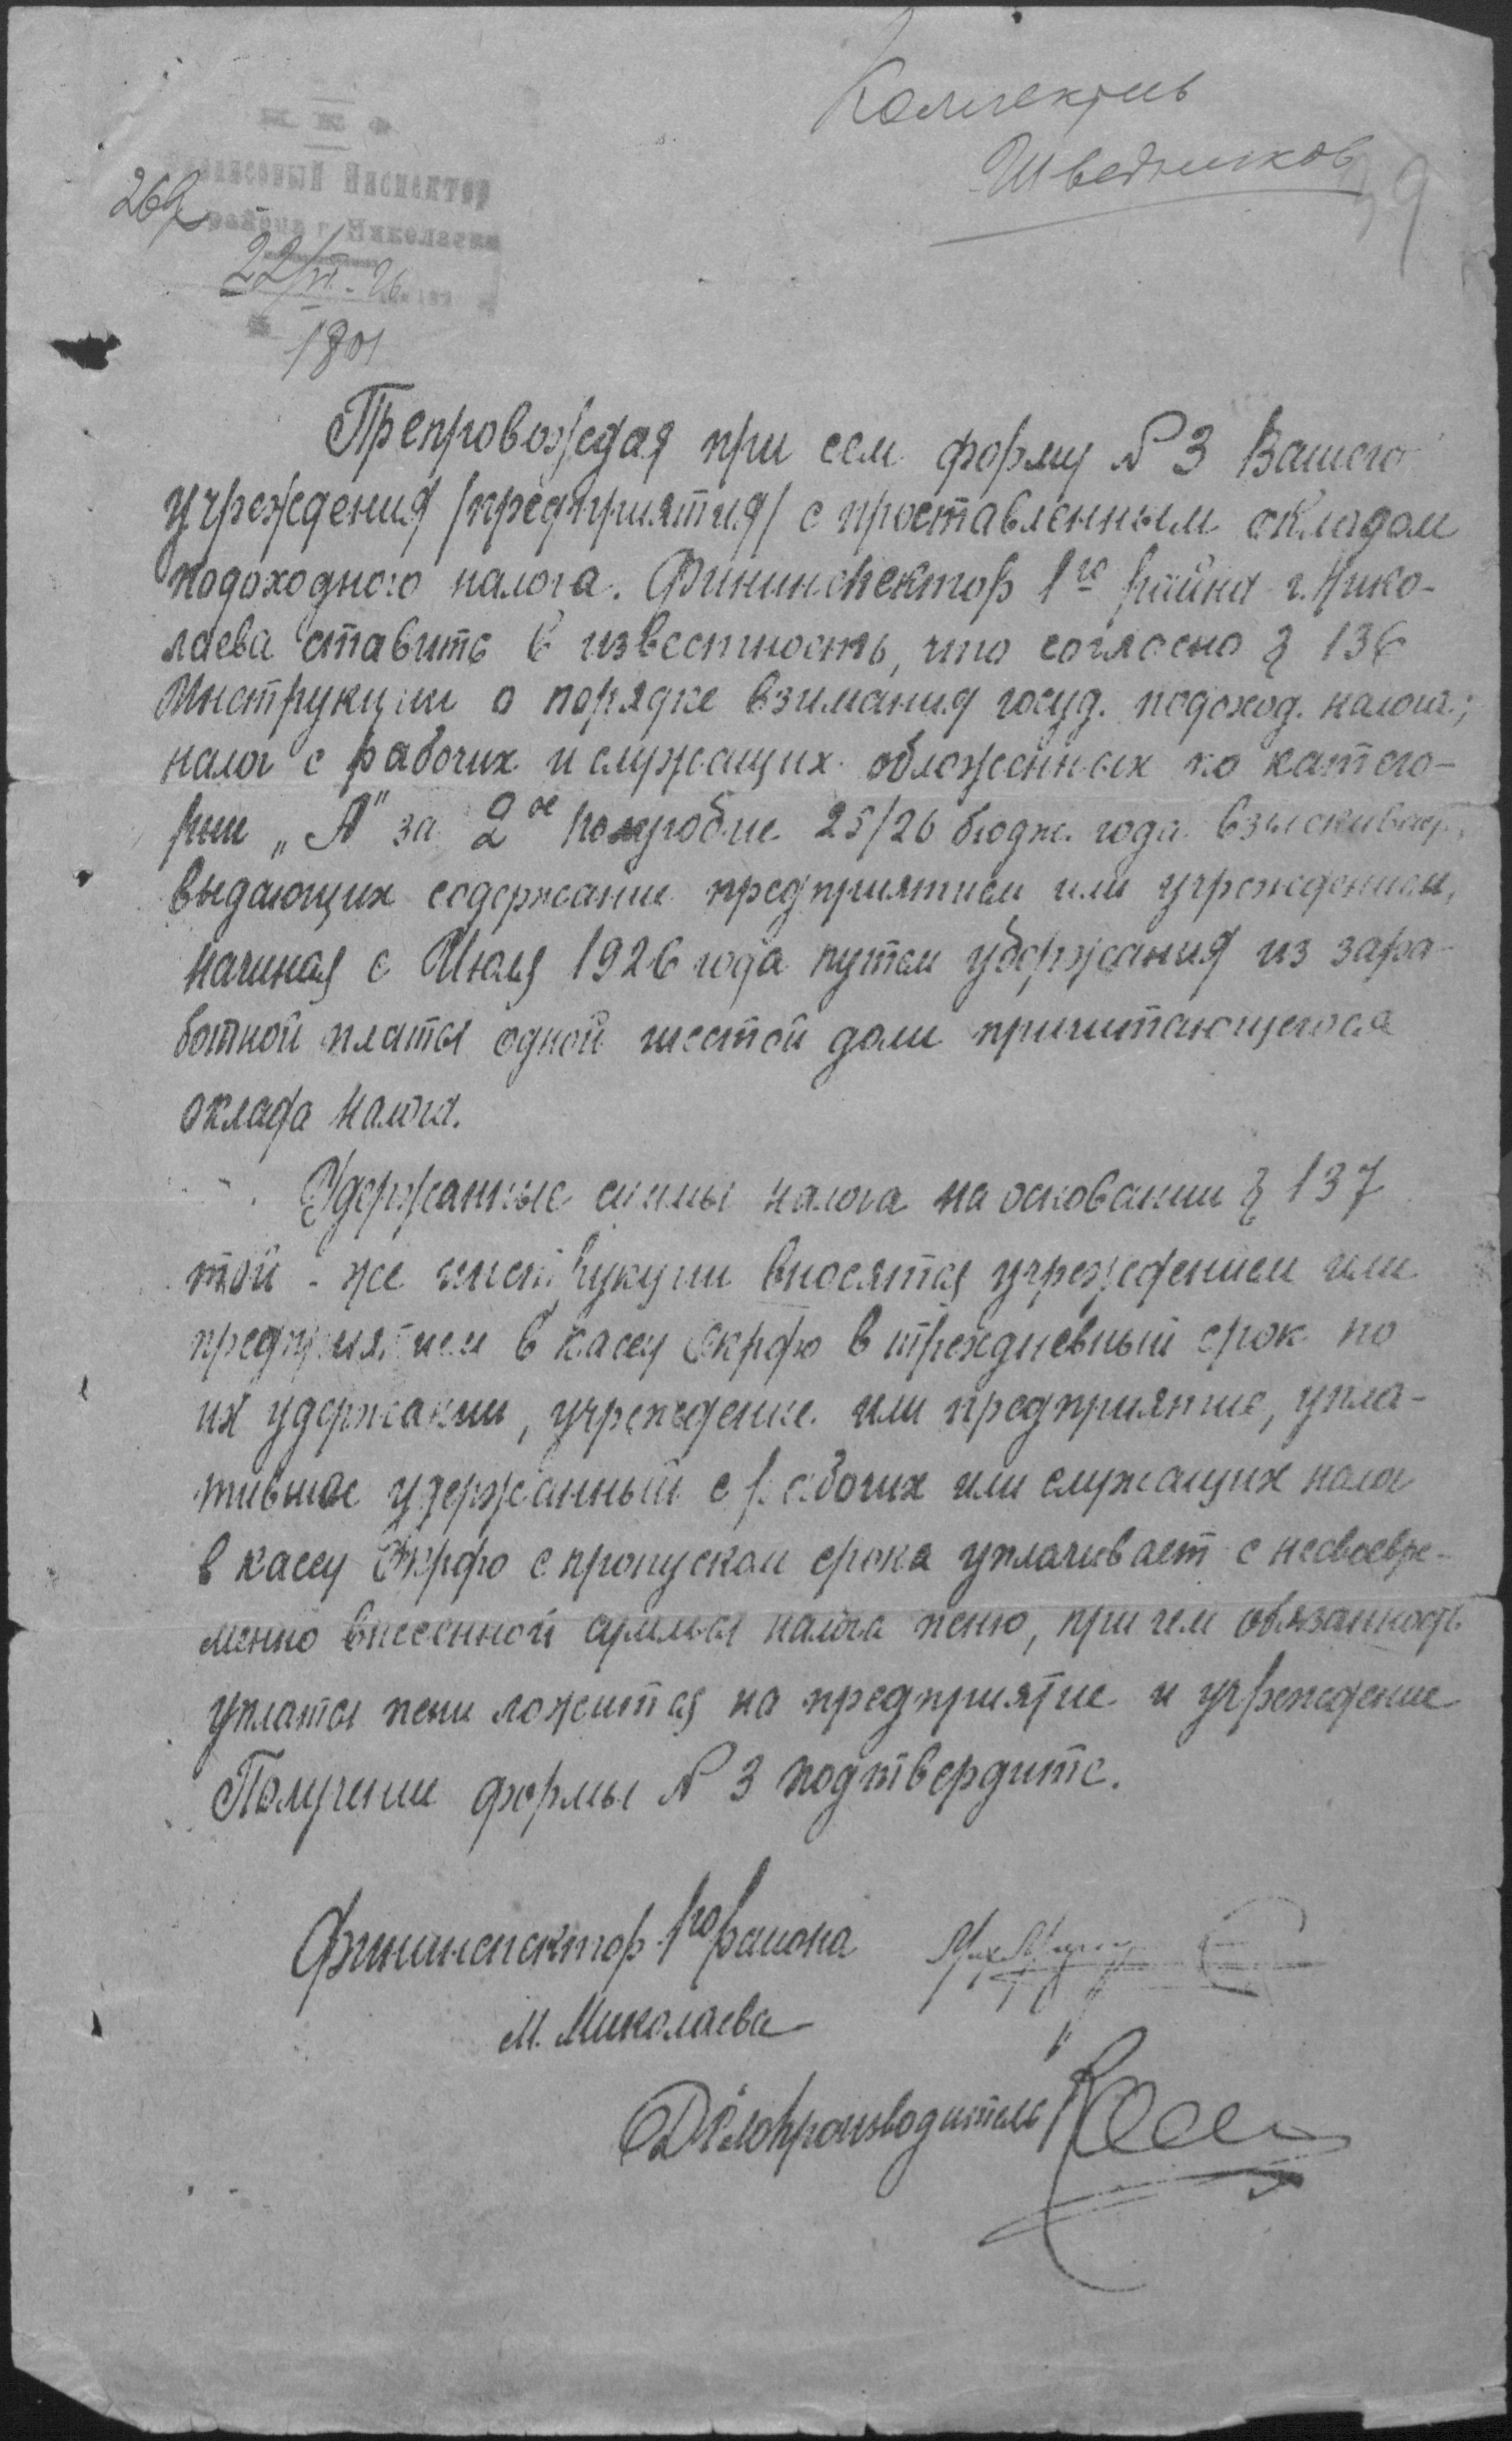 Коллектив
Шведников
39
Н К Ф
Финансовый Инспектор
района г. Николаева
269
22/VI - 26
1801
Препровождая при сем форму № 3 Вашего
учреждения /предприятия/ с проставленным окладом
подоходного налога. Фининспектор 1го района г. Нико-
лаева ставить в известность, что согласно § 136
Инструкции о порядке взимания госуд. подоход. налога;
налог с рабочих и служащих обложенных по катего-
рии „А" за 2ое полугодие 25/26 бюдж. года взыскивает.
выдающих содержание предприятием или учреждением,
начиная с Июля 1926 года путем удержания из зара-
ботной платы одной шестой доли причитающегося
оклада налога.
Удержанные суммы налога на основании § 137
той - же инструкции вносятся учреждением или
предприятием в кассу Окрфо в трехдневный срок по
их удержании, учреждение или предприятие, упла-
тившее удержанный с рабочих или служащих налог
в кассу Окрфо с пропуском срока уплачивает с несвоевре-
менно внесенной суммы налога пеню, при чем обязанность
уплаты пени ложится на предприятие и учреждение
Получение формы № 3 подтвердите.
Фининспектор 1го района
М. Миколаева
Делопроизводитель